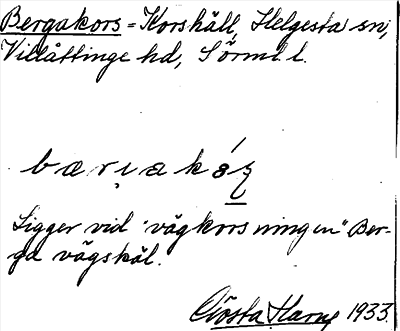 Bergakors = Korshäll, Helgesta sn,
Villåttinge hd, Sörml l.
Ligger vid "vägkorsningen" Ber-
ga vägskäl.
Gösta Harne 1933.